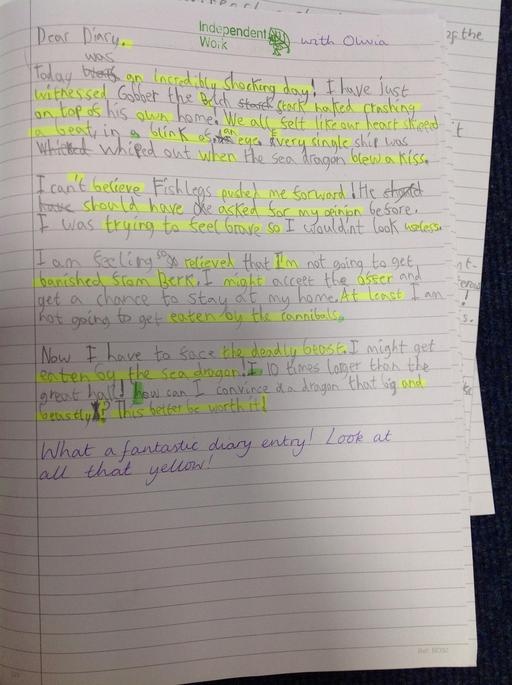 Dear Diary,
Independent
Work
with Olivia
was
Today an incredibly shocking day! I have just
witnessed Gobber the Belch stack naked crashing
on top of his own home. We all felt like our heart skipped
a beat, in a blink of an eye. Every single ship was
whiped out when the sea dragon blew a kiss.
I can't believe Fishlegs pushed me forward! He
should have asked for my opinion before.
I was trying to feel brave so I wouldn't look useless.
I am feeling so relieved that I'm not going to get
banished from Berk. I might accept the offer and
get a chance to stay at my home. At least I am
not going to get eaten by the cannibals.
Now I have to face the deadly beast. I might get
eaten by the sea dragon! I 10 times larger than the
great hall! how can I convince a dragon that big and
beastly? This better be worth it!
What a fantastic diary entry! Look at
all that yellow!
of the